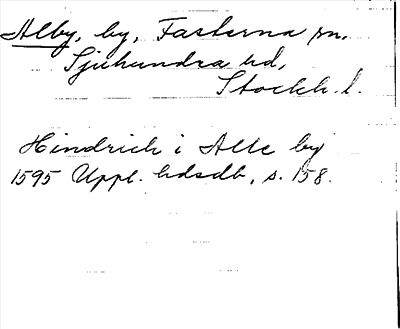 Alby, by, Fasterna sn,
Sjuhundra hd,
Stockh. l.
Hindrich i Alle by
1595 Uppl. hdsdb, s. 158.